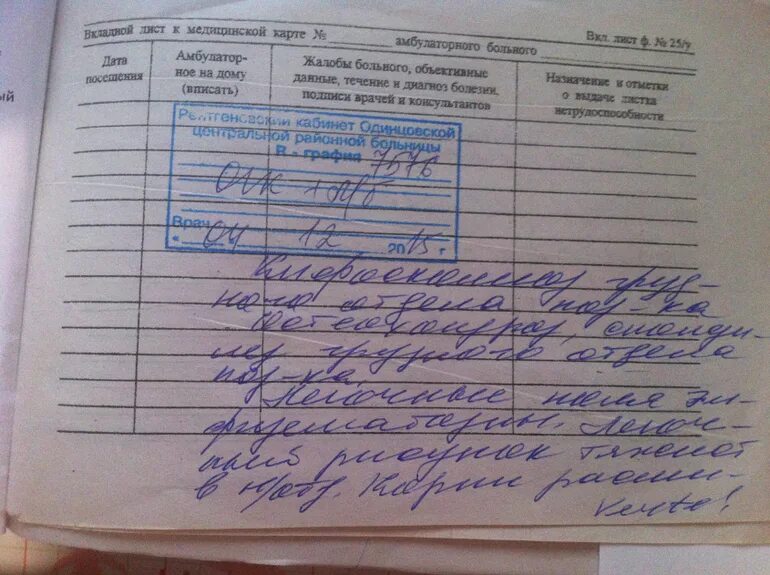 ый
Вкладной лист к медицинской карте № амбулаторного больного
Вкл. лист ф. № 25/у
Дата посещения
Амбулатор-
ное на дому
(вписать)
Жалобы больного, объективные
данные, течение и диагноз болезни,
подписи врачей и консультантов
Назначение и отметки
о выдаче листка
нетрудоспособности
Рентгеновский кабинет Одинцовской
центральной районной больницы
R - графия 7576
ОГК +
Врач
« 04 12 2015 г
Кифосколиоз груд-
ного отдела поз-ка
Остеохондроз, спонди-
лез грудного отдела
поз-ка.
Легочные поля эм-
физематозны. Легоч-
ный рисунок тяжист
в н/отд. Корни расши-